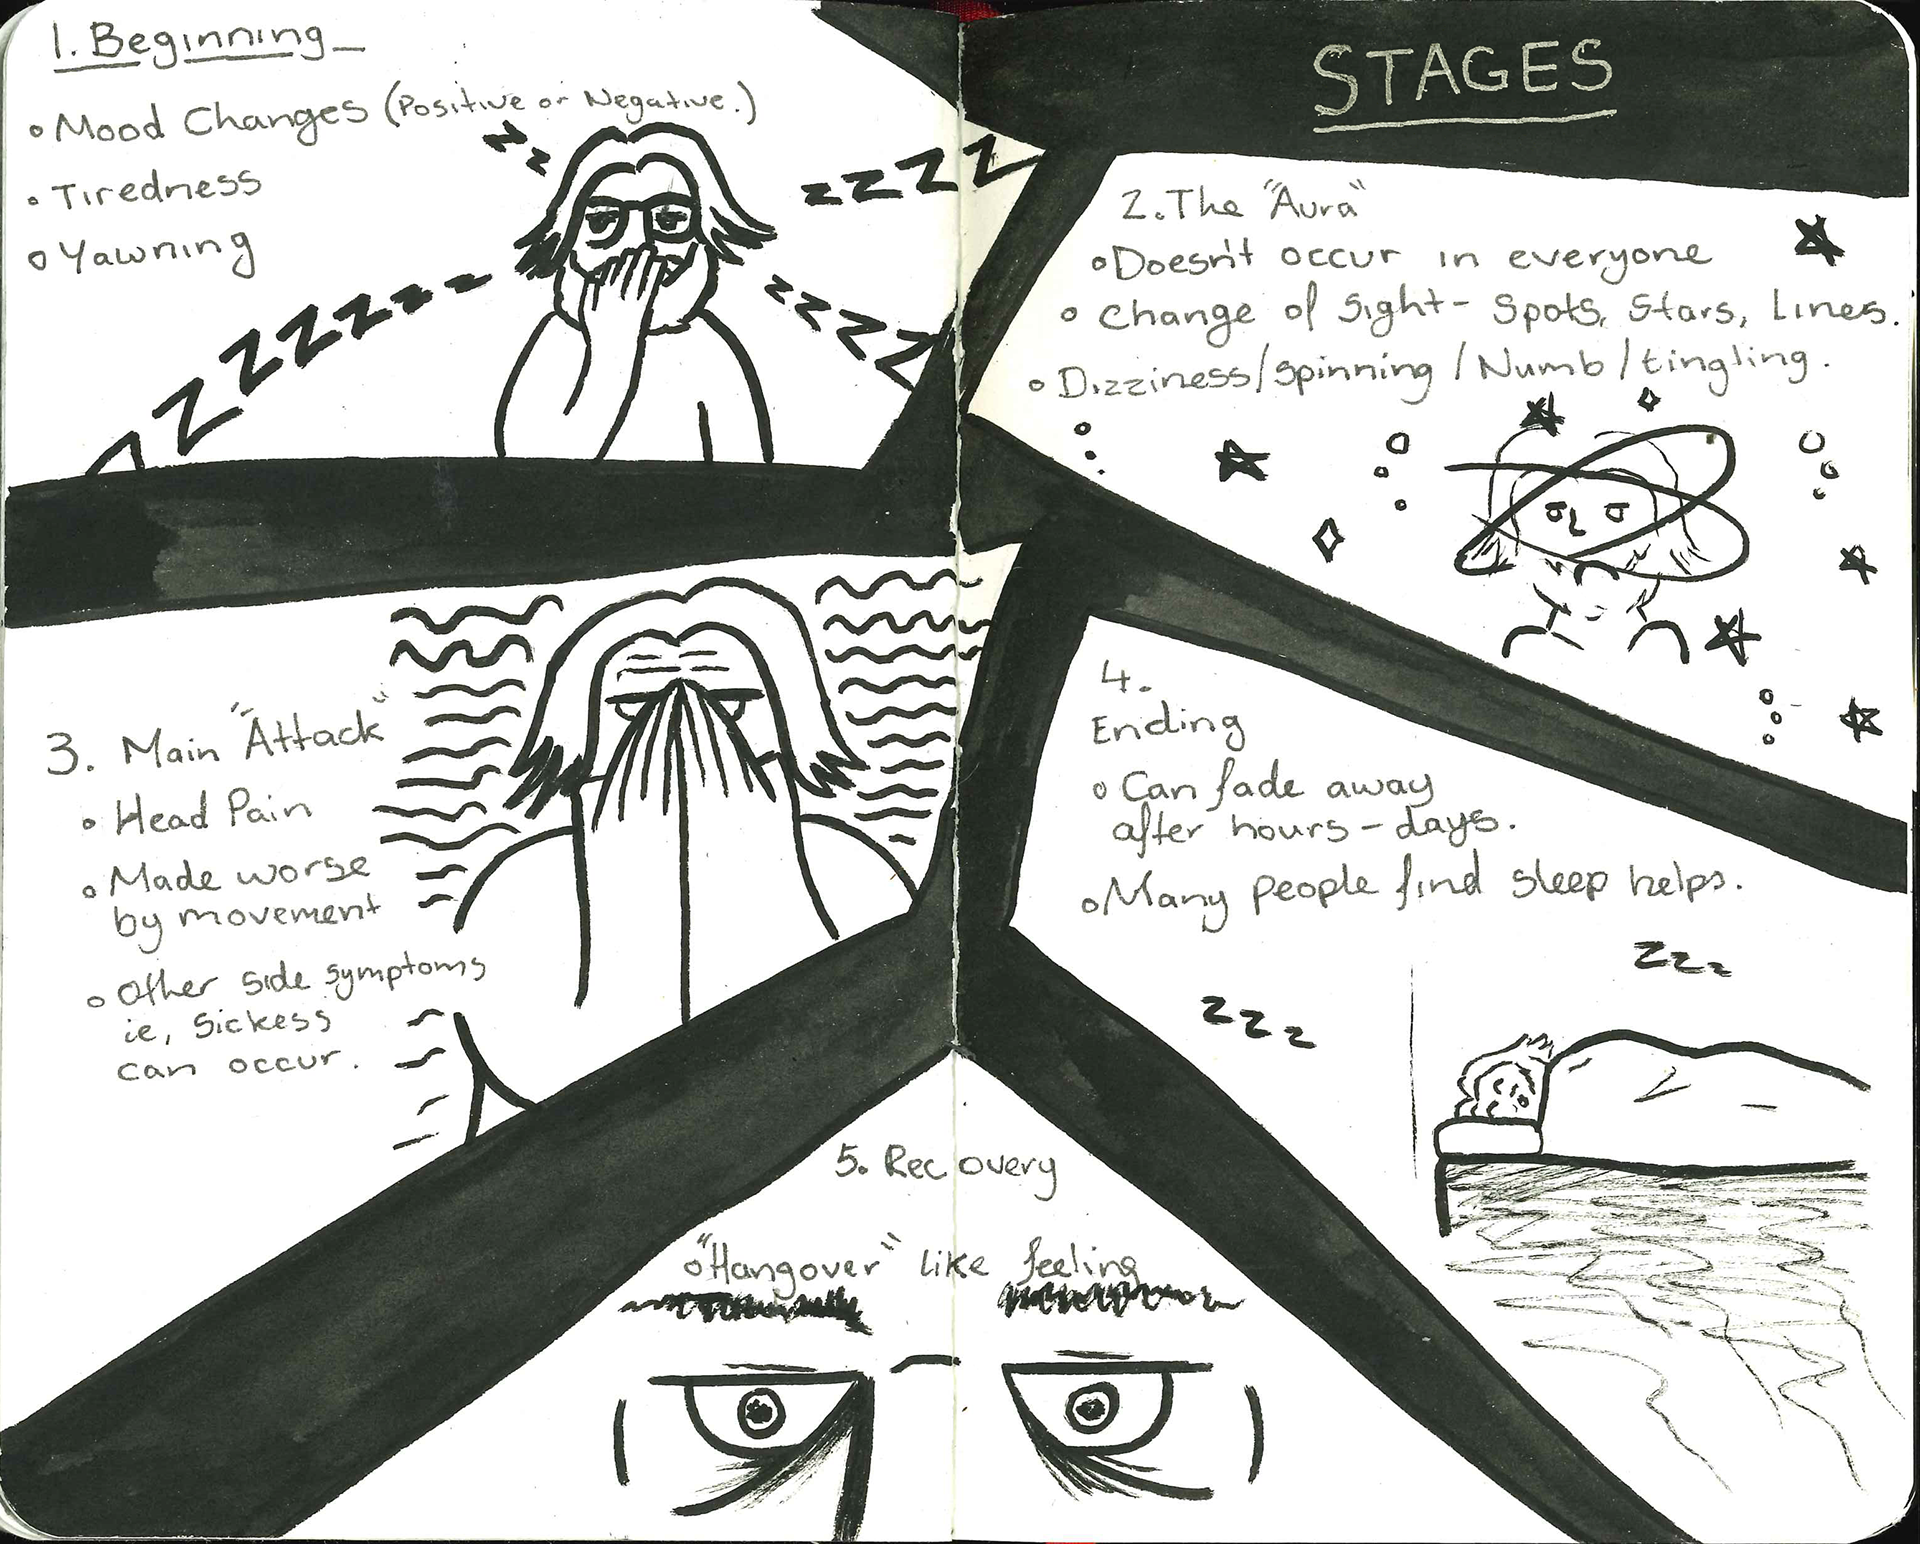 STAGES
1. Beginning
Mood Changes (Positive or Negative.)
Tiredness
Yawning
zz
zzzz
zzzzzzzzz
zzzzz
2. The "Aura"
Doesn't occur in everyone
Change of Sight - Spots, Stars, Lines.
Dizziness/spinning/Numb/tingling.
3. Main "Attack"
Head Pain
Made worse
by movement
Other side symptoms
ie, Sickess
can occur.
4.
Ending
Can fade away
after hours - days.
Many people find sleep helps.
zzz
zzz
5. Recovery
"Hangover" like feeling